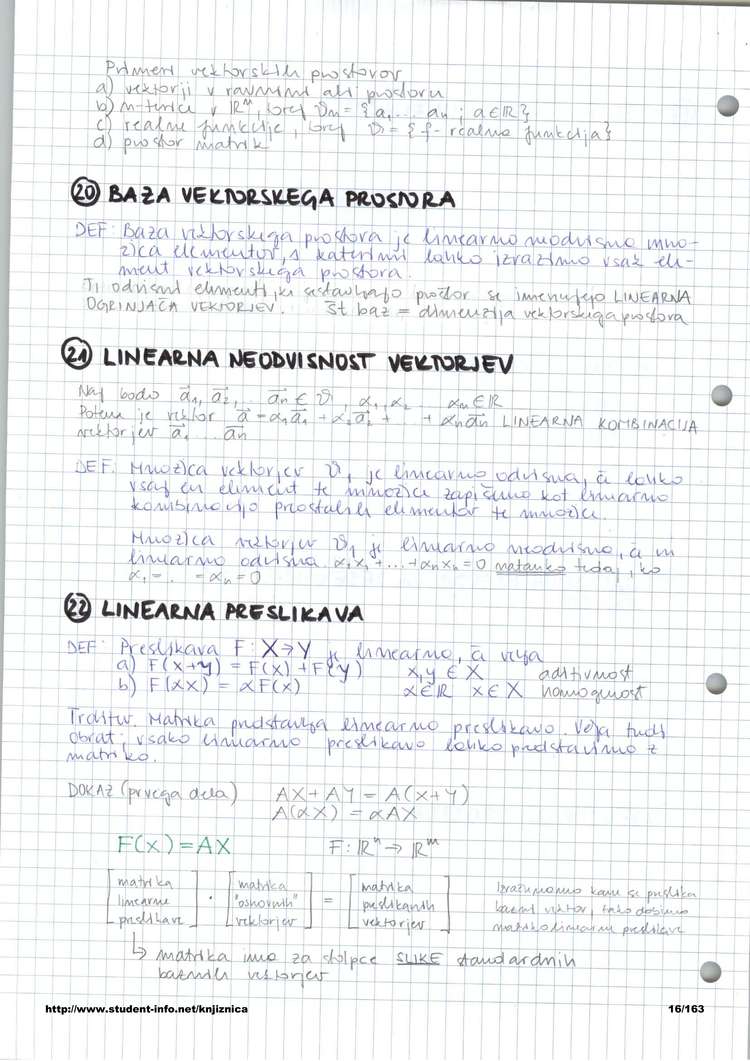 Primeri vektorskih prostorov
a) vektorji v ravnini ali prostoru
b) n-terice v ℝⁿ, 𝒱n = {a₁ ... an ; a∈ℝ}
c) realne funkcije, 𝒱 = {f - realna funkcija}
d) prostor matrik
20 BAZA VEKTORSKEGA PROSTORA
DEF: Baza vektorskega prostora je linearno neodvisna mno-
žica elementov, s katerimi lahko izrazimo vsak ele-
ment vektorskega prostora.
Ti odvisni elementi, ki sestavljajo prostor se imenujejo LINEARNA
OGRINJAČA VEKTORJEV. Št baz = dimenzija vektorskega prostora
21 LINEARNA NEODVISNOST VEKTORJEV
Naj bodo a⃗₁, a⃗₂, ... a⃗n ∈ 𝒱, α₁, α₂ ... αn ∈ ℝ
Potem je vektor a⃗ = α₁a⃗₁ + α₂a⃗₂ + ... + αna⃗n LINEARNA KOMBINACIJA
vektorjev a⃗₁ ... a⃗n
DEF: Množica vektorjev 𝒱₁ je linearno odvisna, če lahko
vsaj en element te množice zapišemo kot linearno
kombinacijo preostalih elementov te množice.
Množica vektorjev 𝒱₁ je linearno neodvisna, če ni
linearno odvisna. α₁x₁ + ... + αnxn = 0 natanko tedaj, ko
α₁ = ... = αn = 0
22 LINEARNA PRESLIKAVA
DEF: Preslikava F: X→Y je linearna, če velja
a) F(x+y) = F(x) + F(y) x,y ∈ X aditivnost
b) F(αx) = αF(x) α∈ℝ x∈X homogenost
Trditev. Matrika predstavlja linearno preslikavo. Velja tudi
obrat; vsako linearno preslikavo lahko predstavimo z
matriko.
DOKAZ (prvega dela) AX + AY = A(X+Y)
A(αX) = αAX
F(x) = AX F: ℝⁿ → ℝᵐ
[matrika linearne preslikave] · [matrika "osnovnih" vektorjev] = [matrika preslikanih vektorjev]
Izračunamo kam se preslika
bazni vektor, tako dobimo
matriko linearne preslikave
↳ matrika ima za stolpce SLIKE standardnih
baznih vektorjev
http://www.student-info.net/knjiznica 16/163